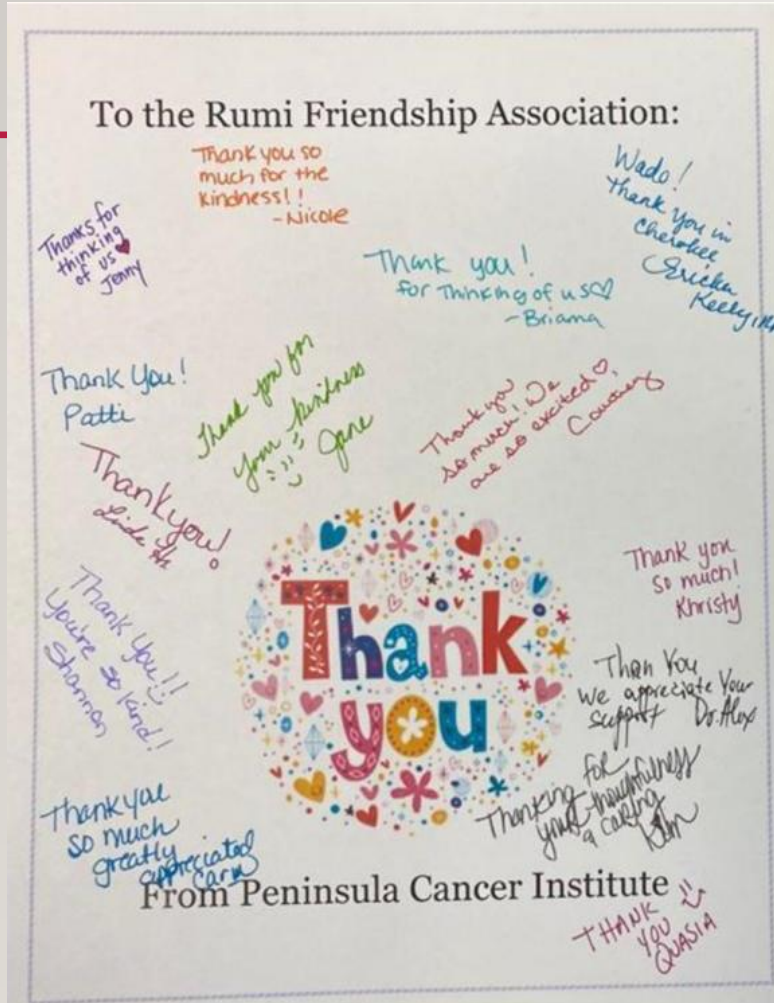 To the Rumi Friendship Association:
Thank you so
much for the
kindness!!
-Nicole
Wado!
Thank you in
Cherokee
Ericka
Thanks for
thinking
of us
Jenny
Thank you!
for Thinking of us
-Briama
Thank You!
Patti
Thank you for
your kindness
Jane
Thank you
so much! We
are so excited
Courtney
Thank you!
Linda
Thank you
so much!
Khristy
Thank You!!
You're so kind!
Shannon
Thank
you
Than You
We appreciate Your
Support Dr. Alex
Thanking for
your thoughtfulness
a caring
Kim
Thank you
so much
greatly
appreciated
From Peninsula Cancer Institute
THANK
YOU
QUASIA